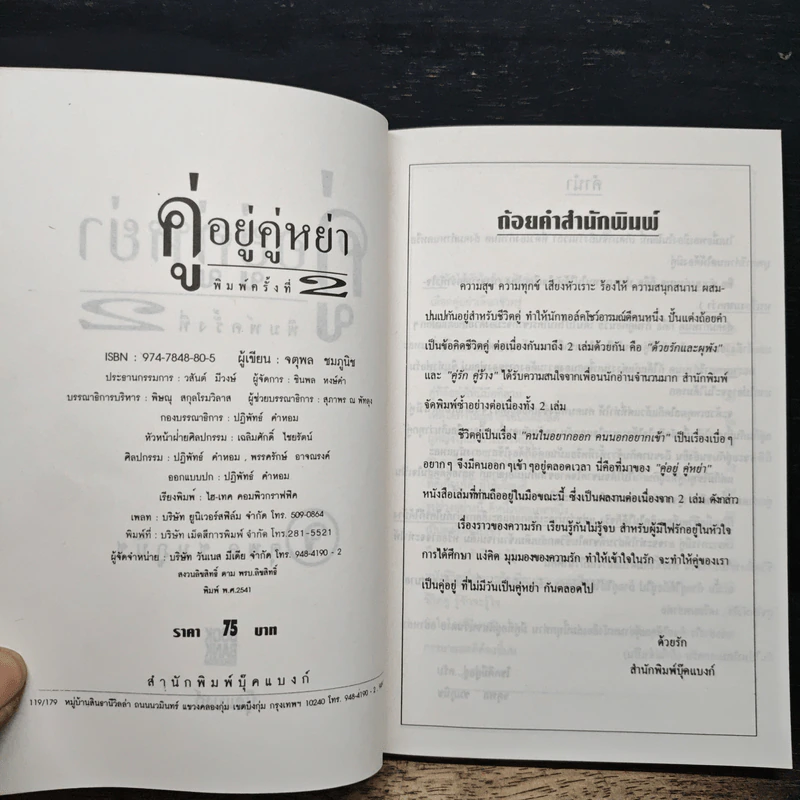 คู่อยู่คู่หย่า
พิมพ์ครั้งที่ 2
ISBN : 974-7848-80-5 ผู้เขียน : จตุพล ชมภูนิช
ประธานกรรมการ : วสันต์ มีวงษ์ ผู้จัดการ : ชินพล หงษ์คำ
บรรณาธิการบริหาร : พิษณุ สกุลโรมวิลาส ผู้ช่วยบรรณาธิการ : สุภาพร ณ พัทลุง
กองบรรณาธิการ : ปฏิพัทธ์ คำหอม
หัวหน้าฝ่ายศิลปกรรม : เฉลิมศักดิ์ ไชยรัตน์
ศิลปกรรม : ปฏิพัทธ์ คำหอม , พรรครักษ์ อาจณรงค์
ออกแบบปก : ปฏิพัทธ์ คำหอม
เรียงพิมพ์ : ไฮ-เทค คอมพิวกราฟฟิค
เพลท : บริษัท ยูนิเวอร์สฟิล์ม จำกัด โทร. 509-0864
พิมพ์ที่ : บริษัท เม็ดสีการพิมพ์ จำกัด โทร.281-5521
ผู้จัดจำหน่าย : บริษัท วันเนส มีเดีย จำกัด โทร. 948-4190 - 2
สงวนลิขสิทธิ์ ตาม พรบ.ลิขสิทธิ์
พิมพ์ พ.ศ.2541
ราคา 75 บาท
สำนักพิมพ์บุ๊คแบงก์
119/179 หมู่บ้านสินธานีวิลล่า ถนนนวมินทร์ แขวงคลองกุ่ม เขตบึงกุ่ม กรุงเทพฯ 10240 โทร. 948-4190 - 2
ถ้อยคำสำนักพิมพ์
ความสุข ความทุกข์ เสียงหัวเราะ ร้องไห้ ความสนุกสนาน ผสม-
ปนเปกันอยู่สำหรับชีวิตคู่ ทำให้นักทอล์คโชว์อารมณ์ดีคนหนึ่ง ปั้นแต่งถ้อยคำ
เป็นข้อคิดชีวิตคู่ ต่อเนื่องกันมาถึง 2 เล่มด้วยกัน คือ "ด้วยรักและผุพัง"
และ "คู่รัก คู่ร้าง" ได้รับความสนใจจากเพื่อนนักอ่านจำนวนมาก สำนักพิมพ์
จัดพิมพ์ซ้ำอย่างต่อเนื่องทั้ง 2 เล่ม
ชีวิตคู่เป็นเรื่อง "คนในอยากออก คนนอกอยากเข้า" เป็นเรื่องเบื่อๆ
อยากๆ จึงมีคนออกๆเข้าๆอยู่ตลอดเวลา นี่คือที่มาของ "คู่อยู่ คู่หย่า"
หนังสือเล่มที่ท่านถืออยู่ในมือขณะนี้ ซึ่งเป็นผลงานต่อเนื่องจาก 2 เล่ม ดังกล่าว
เรื่องราวของความรัก เรียนรู้กันไม่รู้จบ สำหรับผู้มีไฟรักอยู่ในหัวใจ
การได้ศึกษา แง่คิด มุมมองของความรัก ทำให้เข้าใจในรัก จะทำให้คู่ของเรา
เป็นคู่อยู่ ที่ไม่มีวันเป็นคู่หย่า กันตลอดไป
ด้วยรัก
สำนักพิมพ์บุ๊คแบงก์